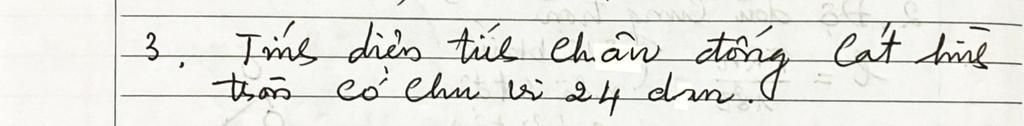 3. Tính diện tích chân đống cát hình
tròn có chu vi 24 dm.